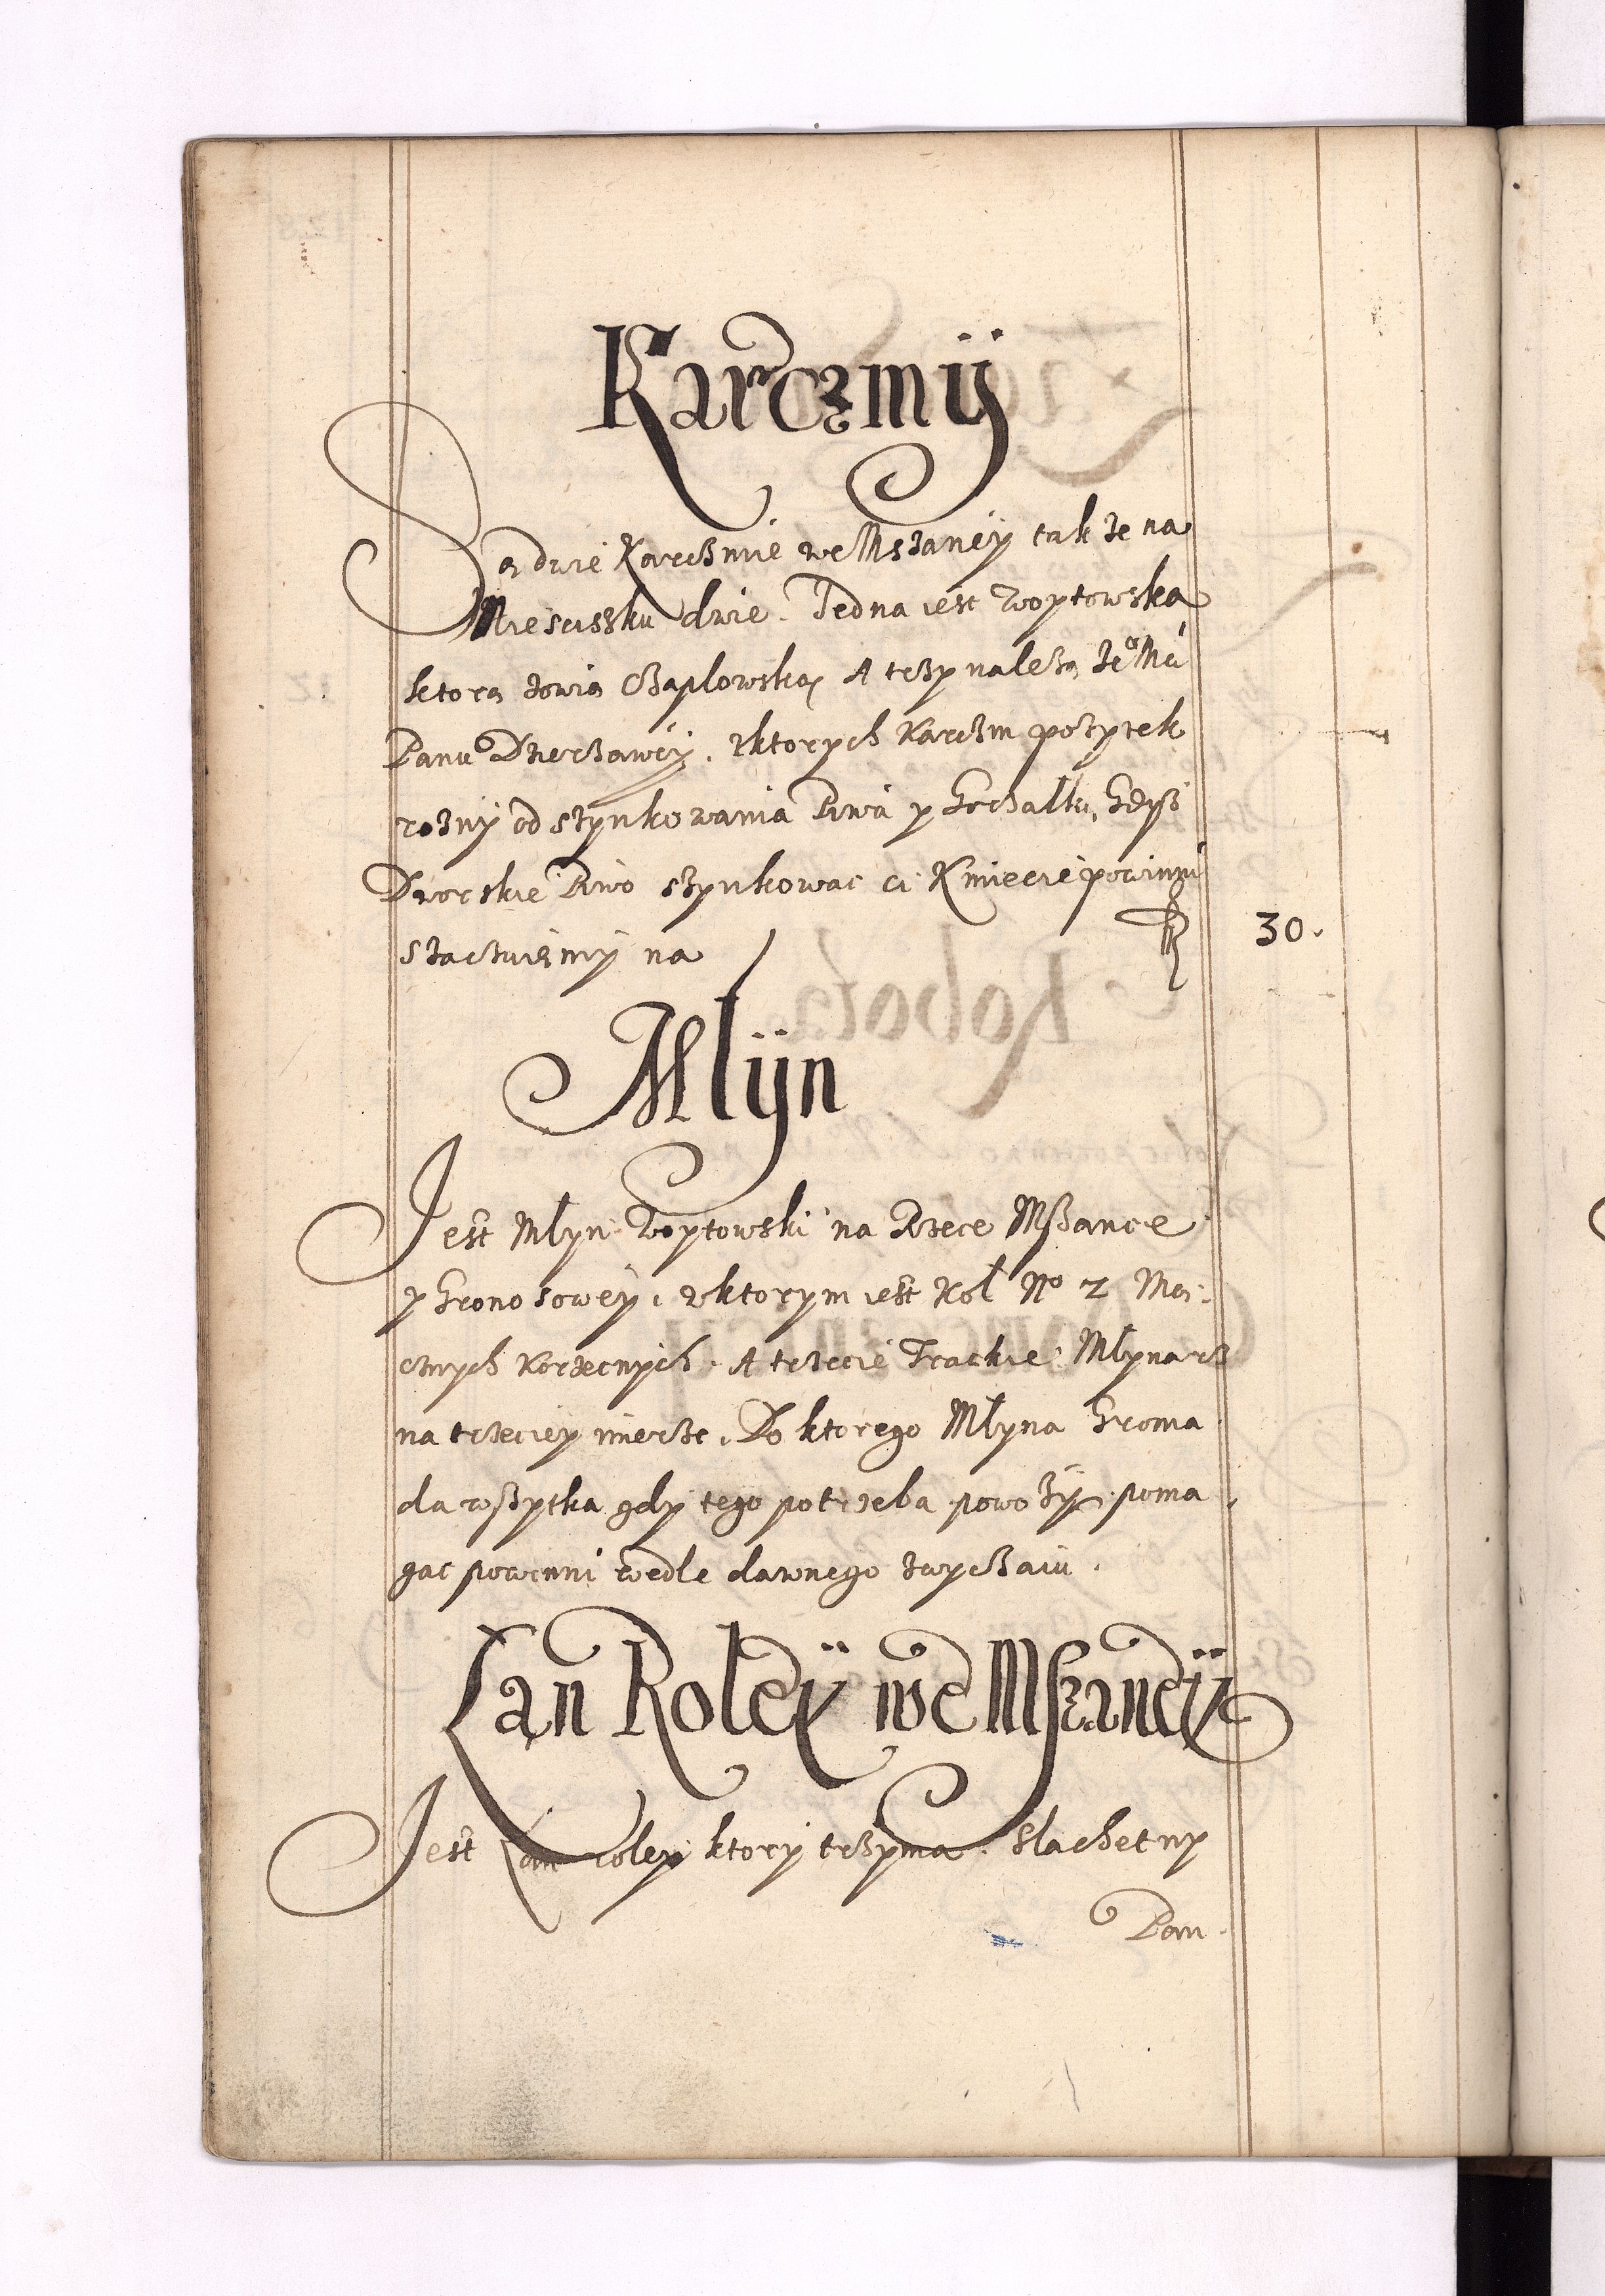 Karczmÿ
Są dwie Karczmie we Mszaneÿ tak że na
Miesciszku dwie. Jedna iest Woytowska
ktorą zowią Czaplowską A trzy należą Je͠o Mci
Panu Dzierzawcÿ. z ktorych Karczm pożytek
rożnÿ od szynkowania Piwa y Gorzałki, Gdyż
Dworskie Piwo szynkowac ci Kmiecie powinni
szacuięmÿ na 30.
Młÿn
Jest Młyn Woytowski na Rzece Mszance
y Gronosoweÿ, w ktorym iest Koł No 2 Mą-
cznych Korzecnÿch. A trzecie Trackie. Młynarz
na trzeciey mierze. Do ktorego Młyna Groma
da wszytka gdy tego potrzeba powoży poma
gac powinni wedle dawnego zwyczaiu.
Łan Roleÿ we Mszaneÿ
Jest Łan roley ktorÿ trzyma. Slachetny
Pan.